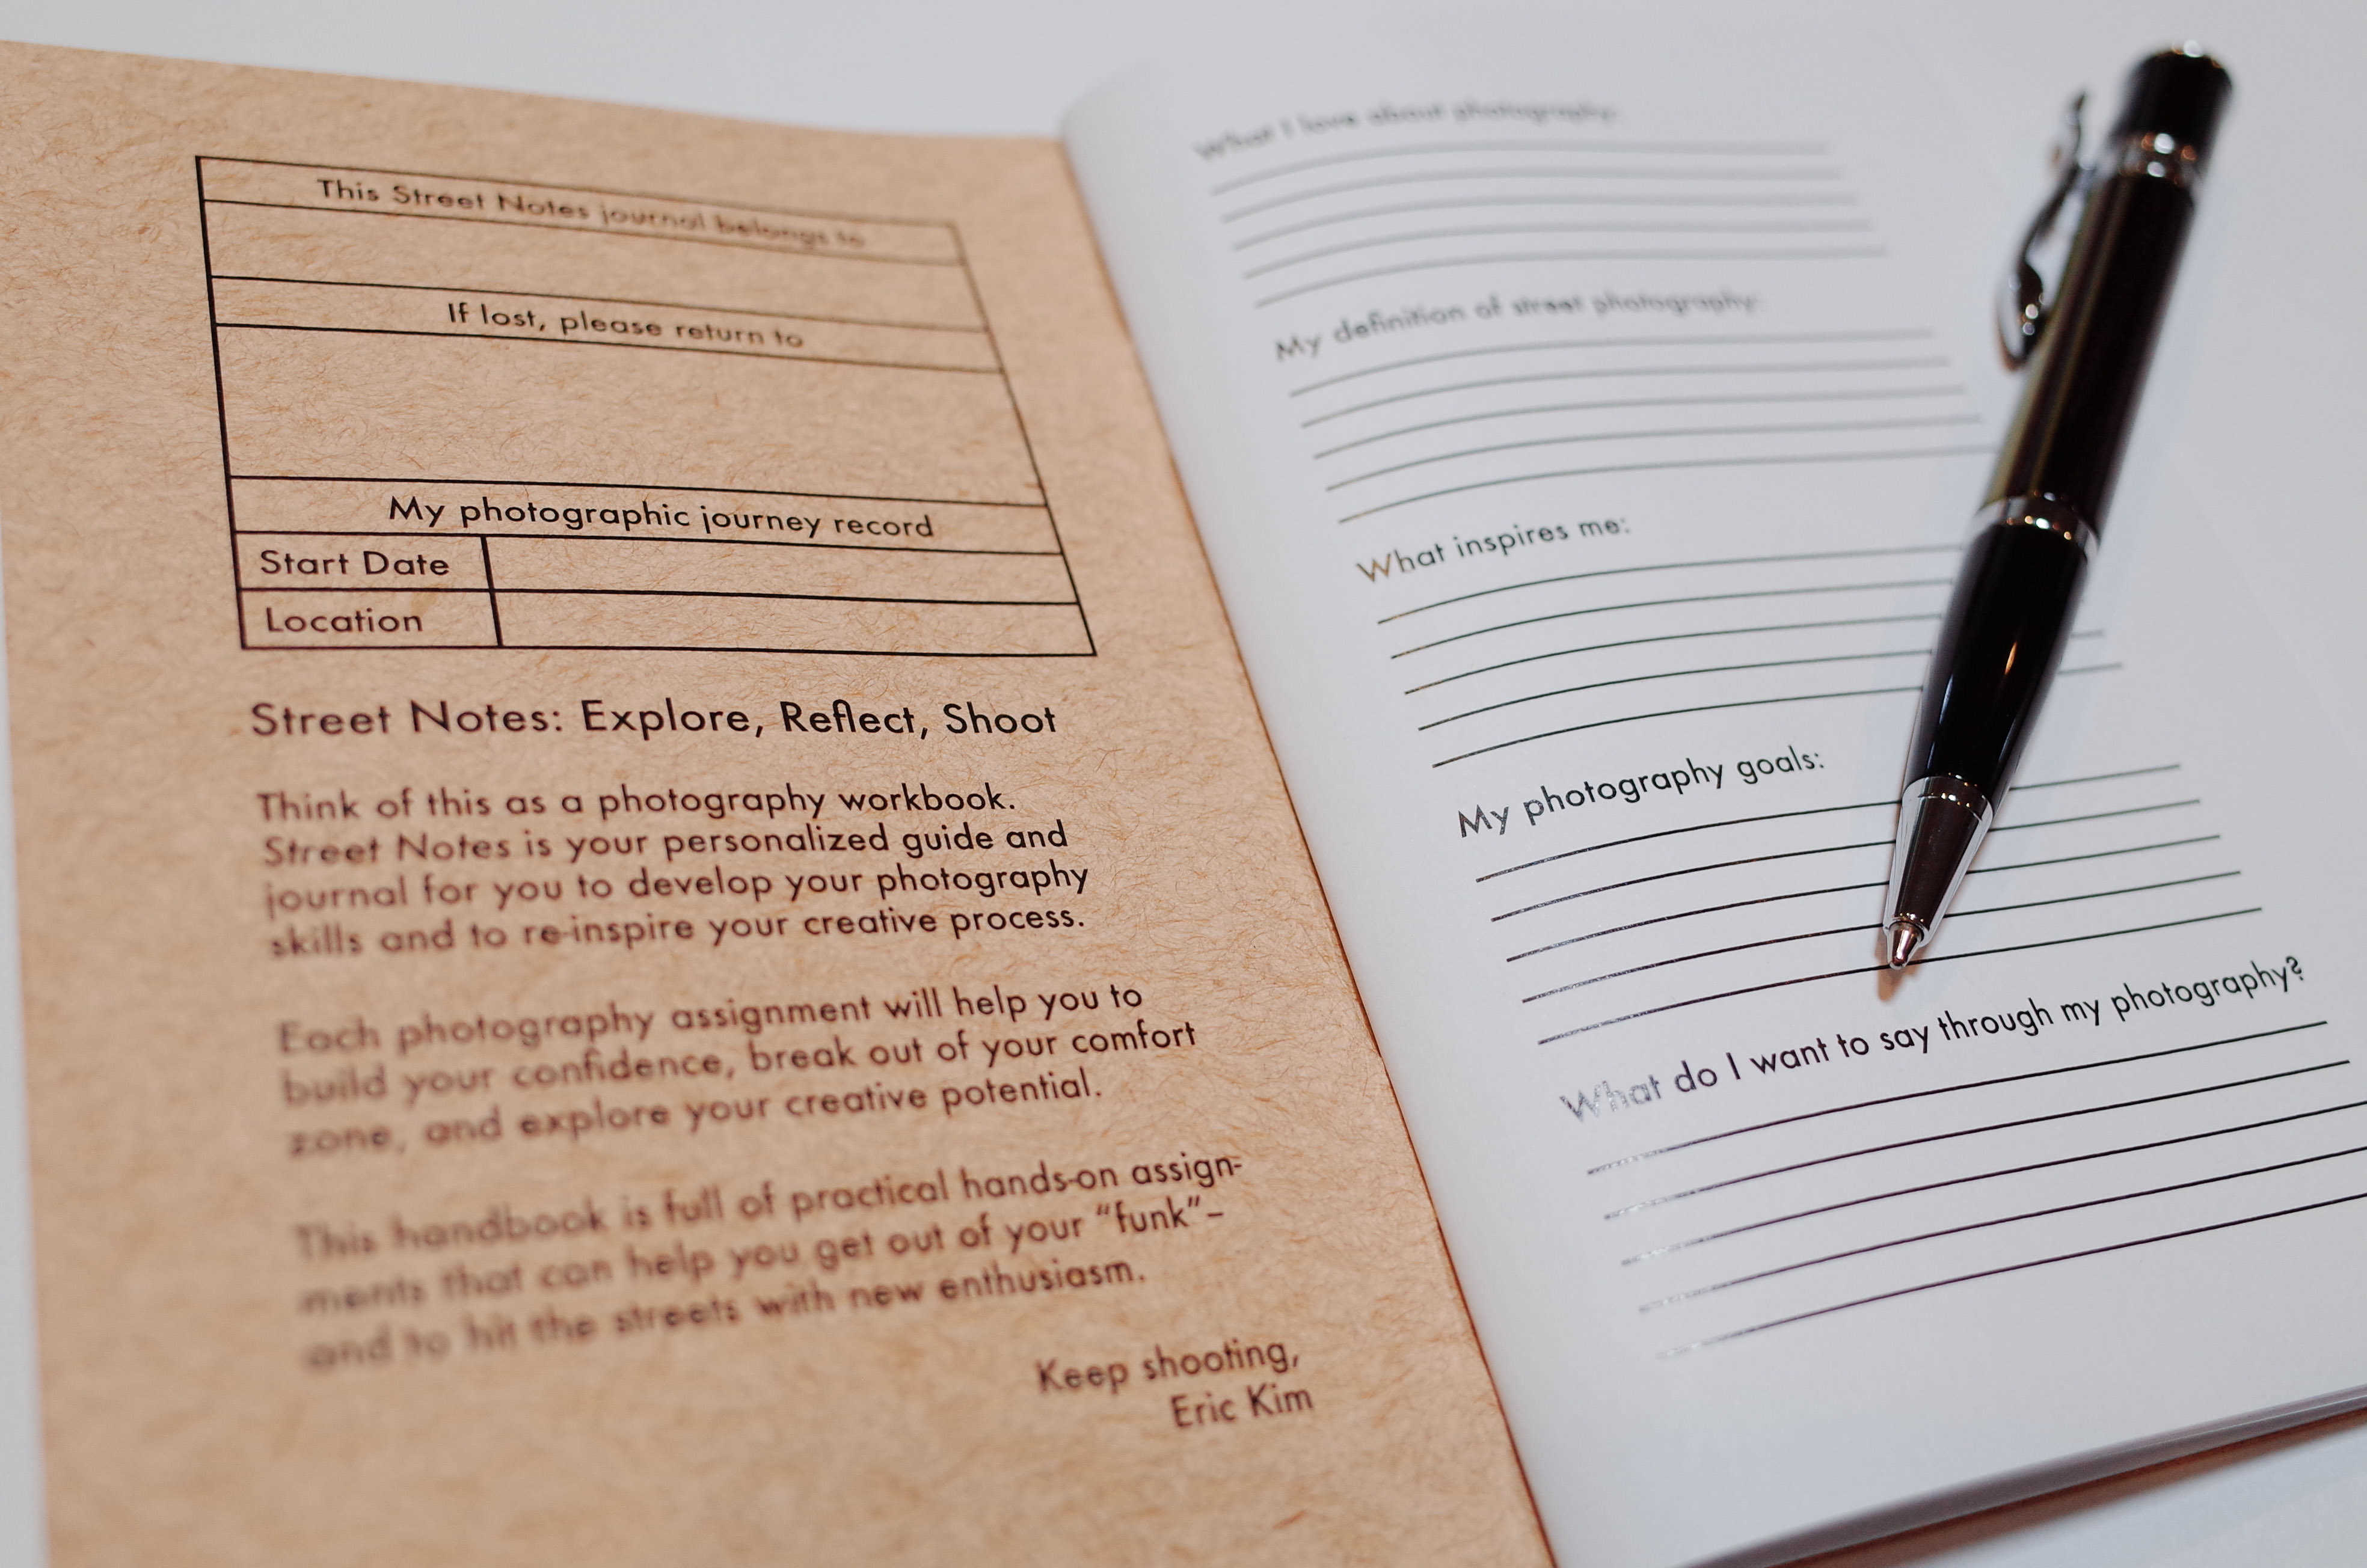 This Street Notes journal belongs to
If lost, please return to
My photographic journey record
Start Date
Location
Street Notes: Explore, Reflect, Shoot
Think of this as a photography workbook.
Street Notes is your personalized guide and
journal for you to develop your photography
skills and to re-inspire your creative process.
Each photography assignment will help you to
build your confidence, break out of your comfort
zone, and explore your creative potential.
This handbook is full of practical hands-on assign-
ments that can help you get out of your “funk”–
and to hit the streets with new enthusiasm.
Keep shooting,
Eric Kim
What I love about photography:
My definition of street photography:
What inspires me:
My photography goals:
What do I want to say through my photography?